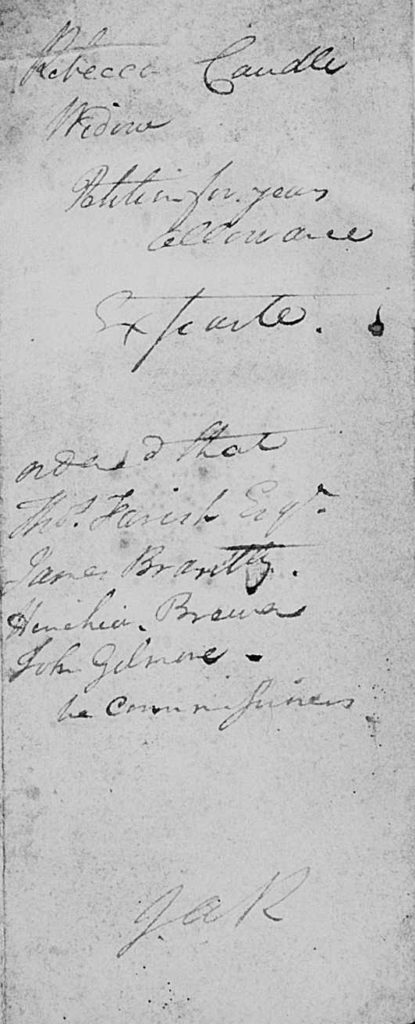 Rebecca Caudle
Widow
Petition for years
allowance
Exparte.
ordered that
Thos. Farish Esqr.
James Brantly.
Hinchia. Brewer
John Gilmore -
be commissioners
J.A.R